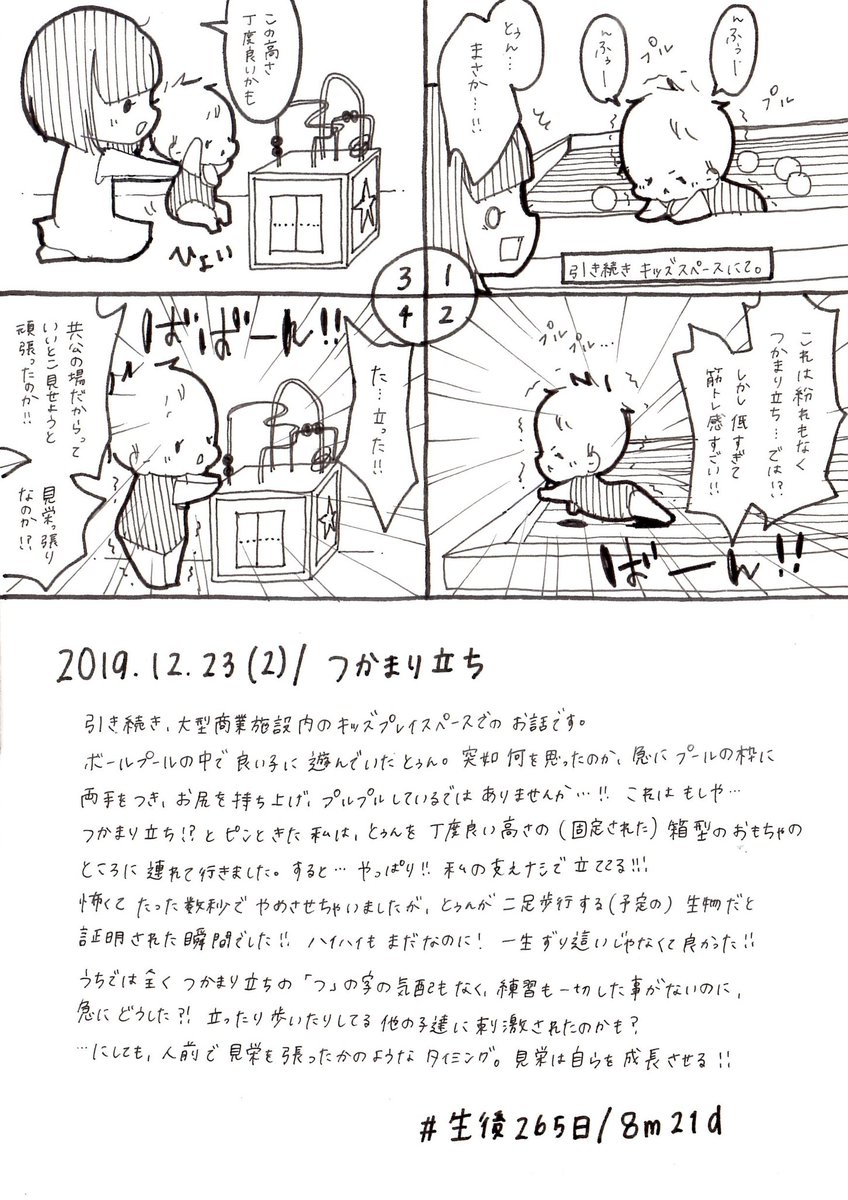 んふぅー
んふぅー
プル
プル
とぅん…
まさか…!!
引き続き キッズスペースにて。
1
これは紛れもなく
つかまり立ち…では!?
しかし低すぎて
筋トレ感すごい!!
プル
プル…
ばーん!!
2
この高さ
丁度良いかも
ひょい
3
た…立った!!
ばばーん!!
共公の場だからって
いいとこ見せようと
頑張ったのか!!
見栄っ張り
なのか!?
4
2019.12.23(2)/ つかまり立ち
引き続き、大型商業施設内のキッズプレイスペースでの お話です。
ボールプールの中で 良い子に 遊んでいたとぅん。突如 何を思ったのか、急に プールの枠に
両手をつき、お尻を持ち上げ、プルプルしているでは ありませんか…!! これは もしや…
つかまり立ち!? と ピンときた 私は、とぅんを 丁度良い高さの (固定された) 箱型のおもちゃの
ところに 連れて行きました。すると… やっぱり!! 私の支えナシで 立ててる!!!
怖くて たった数秒で やめさせちゃいましたが、とぅんが 二足歩行する(予定の) 生物だと
証明された瞬間でした!! ハイハイも まだなのに! 一生ずり這いじゃなくて良かった!!
うちでは全く つかまり立ちの 「つ」の字の気配もなく、練習も一切した事がないのに、
急に どうした?! 立ったり歩いたりしてる 他の子達に 刺激されたのかも?
…にしても、人前で 見栄を張ったかのような タイミング。見栄は自らを成長させる!!
#生後265日/8m21d